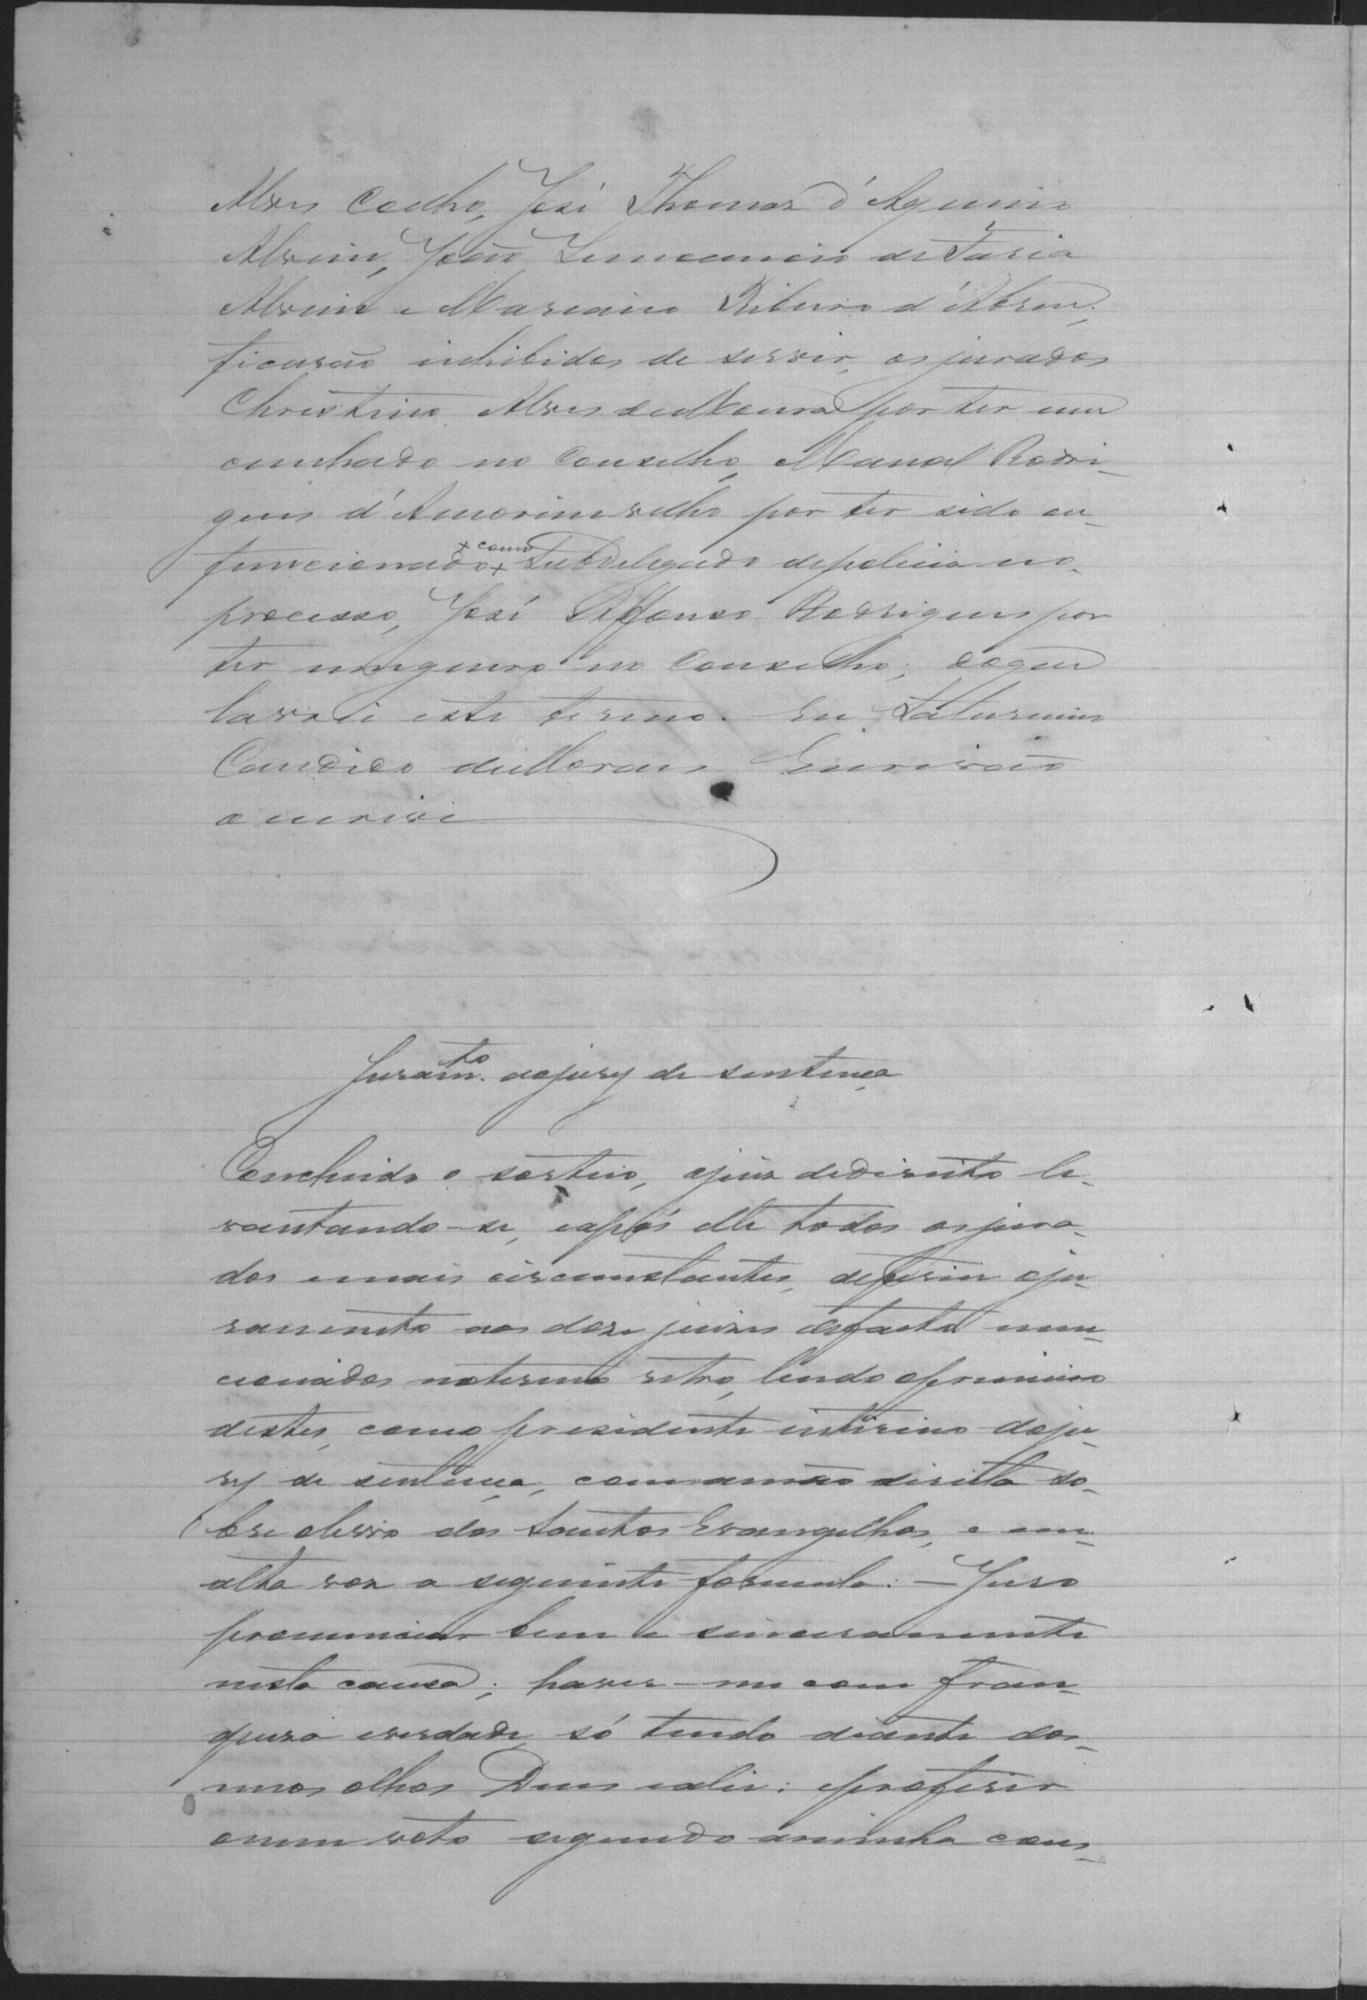 Alves Coelho, José Thomaz d'Aquino
Alvim, João Venceancio de Faria
Alvim e Marciano Ribeiro d'Abreu;
ficarão inhibidos de servir, os jurados
Christino Alves de Moura por ter um
cunhado no Conselho, Manoel Rodri-
gues d'Amorim velho por ter sido en-
funcionado +como+ Subdelegado de policia no
processo, José Affonso Rodrigues por
ter um genro no Conselho; do que
lavrei este termo. Eu Saturnino
Candido de Moraes Escrivão
o escrivi
Juram.to do jury de sentença
Concluido o sorteio, o juiz de direito le-
vantando-se, e após elle todos os jura-
dos e mais circumstantes, deferiu o ju-
ramento aos doze juizes de facto men-
cionados no termo retro, lendo o primeiro
destes, como presidente interino do ju-
ry de sentença, com a mão direita so-
bre o livro dos Santos Evangelhos, e em
alta voz a seguinte formula: — Juro
pronunciar bem e sinceramente
nesta causa; haver-me com fran-
queza e verdade, só tendo diante dos
meus olhos Deus e a lei; e proferir
o meu voto segundo a minha cons-